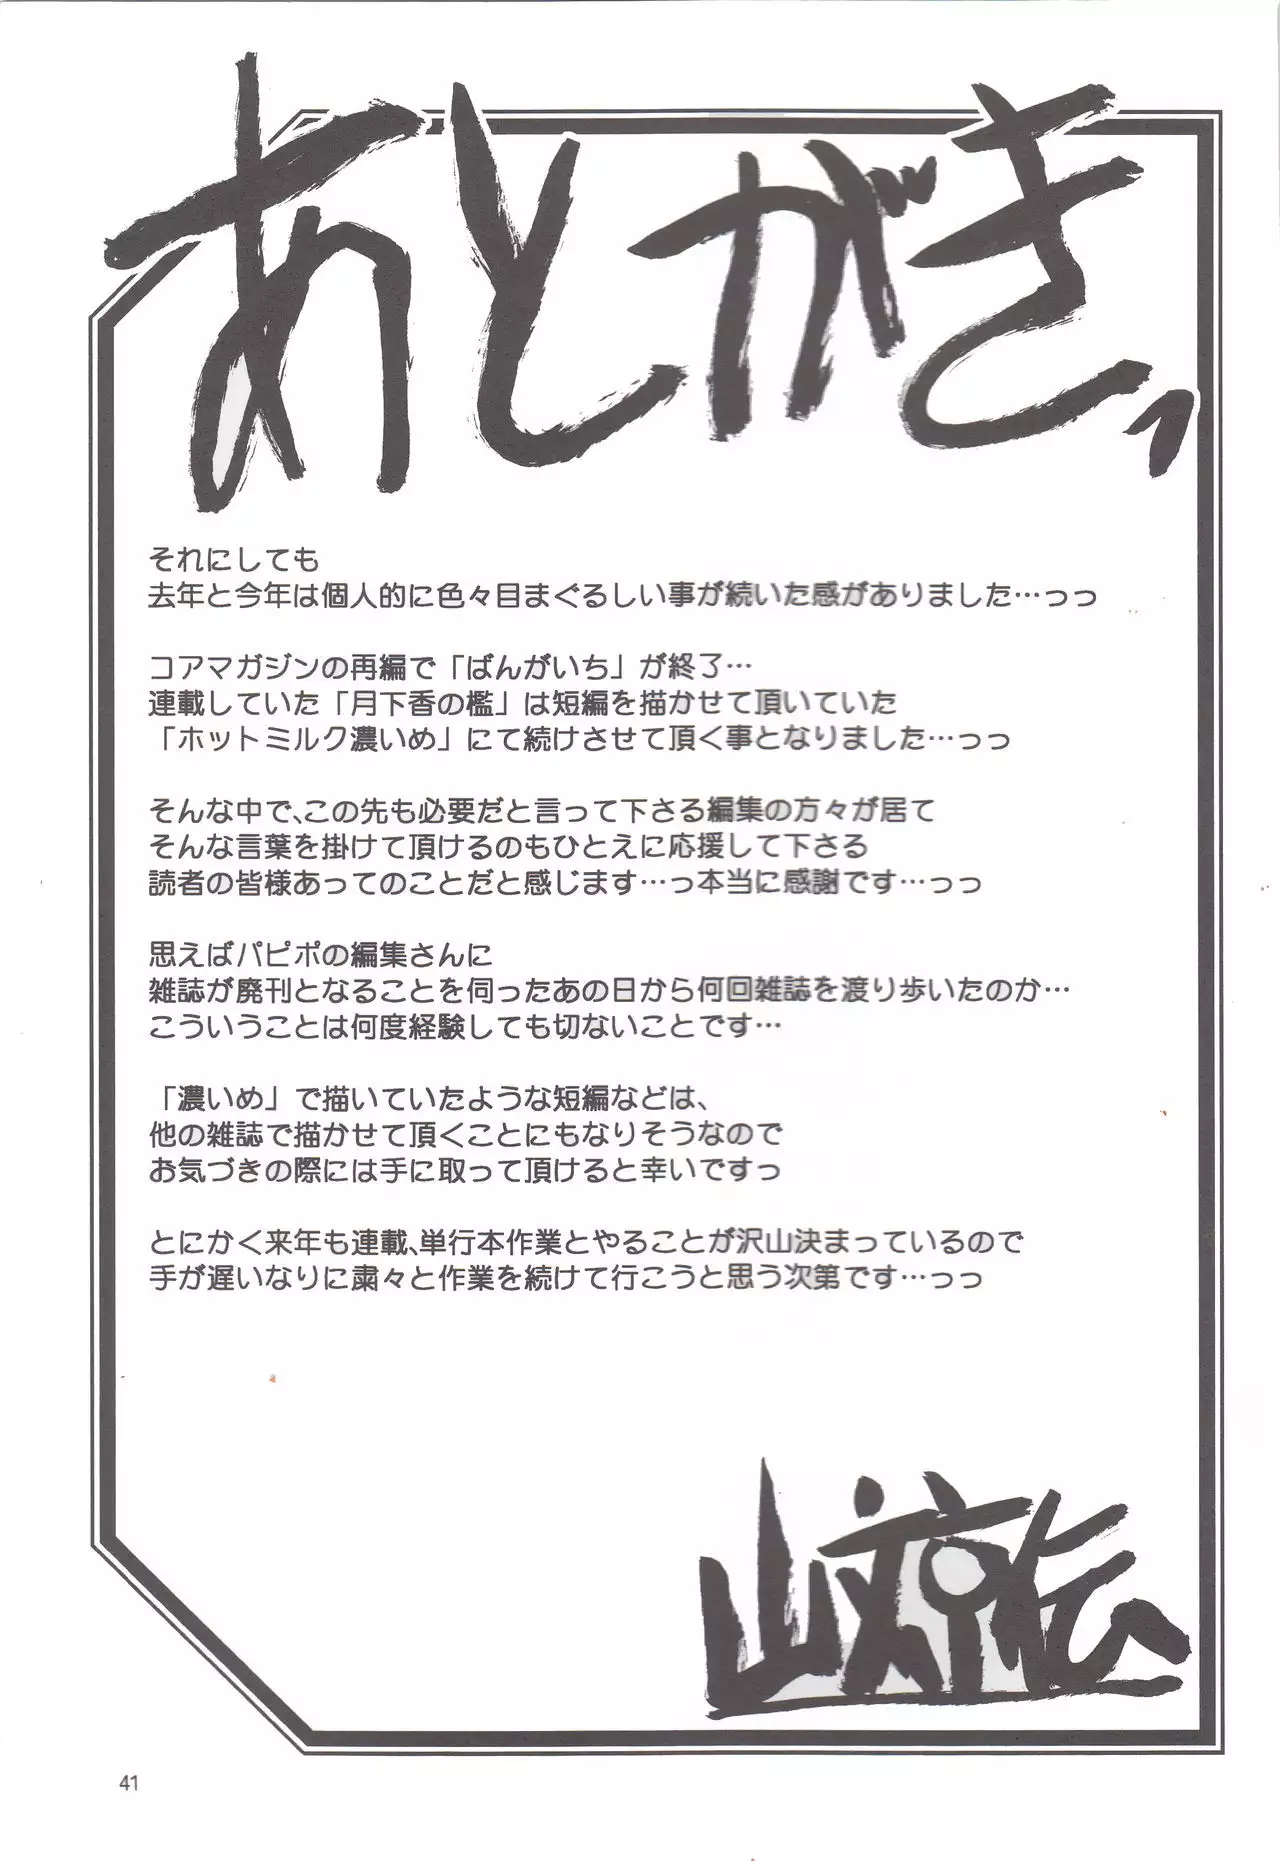 あとがきっ
それにしても
去年と今年は個人的に色々目まぐるしい事が続いた感がありました…っっ
コアマガジンの再編で「ばんがいち」が終了…
連載していた「月下香の檻」は短編を描かせて頂いていた
「ホットミルク濃いめ」にて続けさせて頂く事となりました…っっ
そんな中で、この先も必要だと言って下さる編集の方々が居て
そんな言葉を掛けて頂けるのもひとえに応援して下さる
読者の皆様あってのことだと感じます…っ本当に感謝です…っっ
思えばパピポの編集さんに
雑誌が廃刊となることを伺ったあの日から何回雑誌を渡り歩いたのか…
こういうことは何度経験しても切ないことです…
「濃いめ」で描いていたような短編などは、
他の雑誌で描かせて頂くことにもなりそうなので
お気づきの際には手に取って頂けると幸いですっ
とにかく来年も連載、単行本作業とやることが沢山決まっているので
手が遅いなりに粛々と作業を続けて行こうと思う次第です…っっ
山文京伝
41